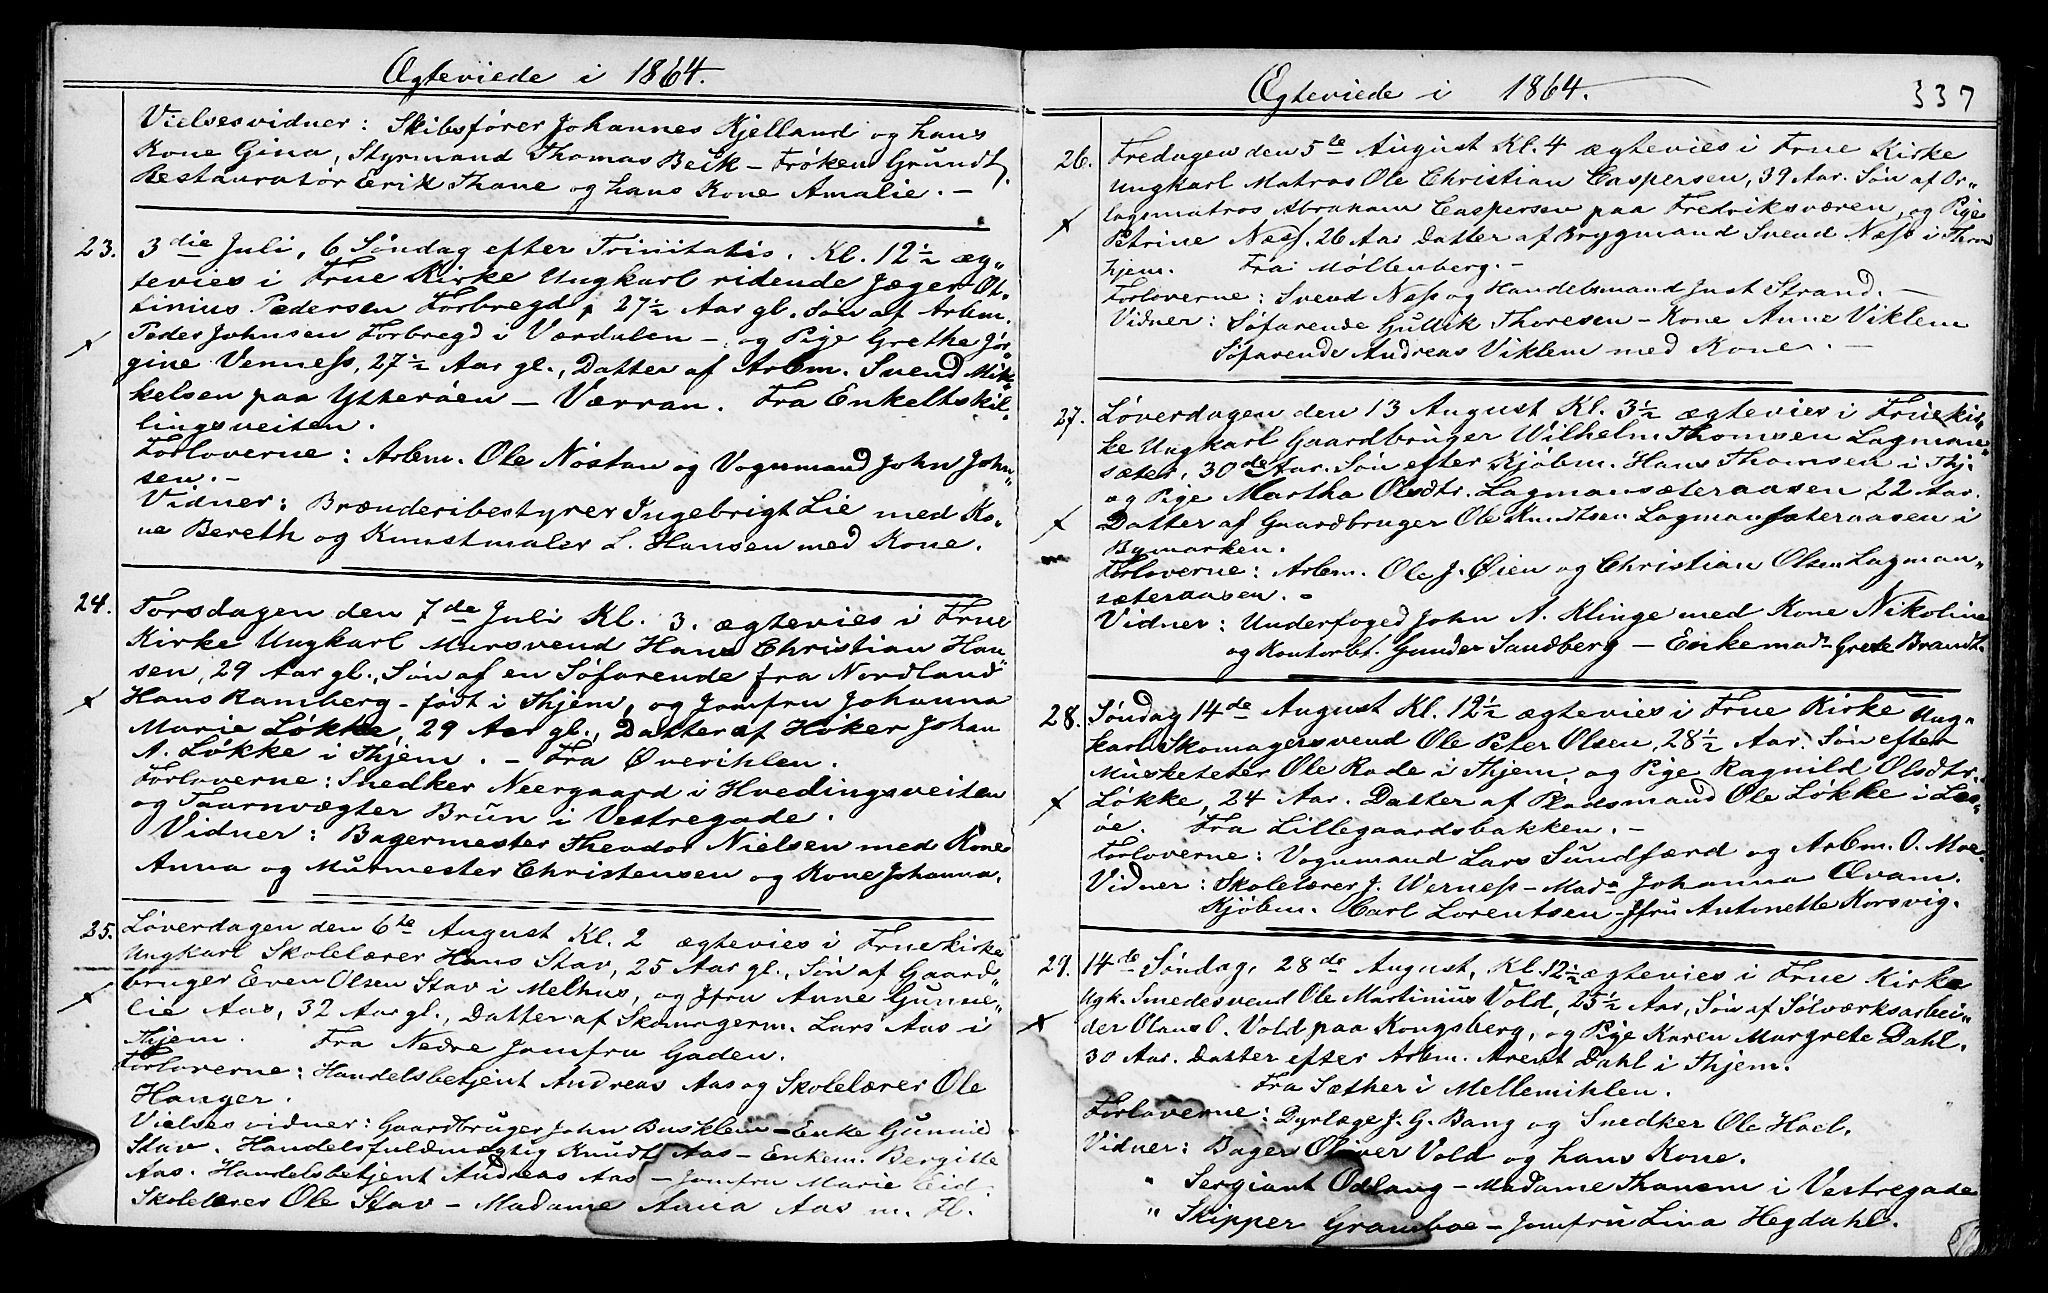 Ægteviede i 1864.
Vielsesvidner: Skibsfører Johannes Kjelland og hans
Kone Gina, Styrmand Thomas Beck – Frøken Grundt,
Restauratør Erik Thane og hans Kone Amalie. –
23. 3die Juli, 6 Søndag efter Trinitatis. Kl. 12½ æg„
tevies i Frue Kirke Ungkarl ridende Jæger Ot„
tinius Pedersen Forbregd, 27½ Aar gl. Søn af Arbm.
Peder Johnsen Forbregd i Værdalen – og Pige Grethe Jør„
gine Venness, 27½ Aar gl., Datter af Arbm. Svend Mik„
kelsen paa Ytterøen – Værran. Fra Enkeltskil„
lingsveiten.
Forloverne: Arbm. Ole Nøstan og Vognmand John John„
sen. –
Vidner: Brænderibestyrer Ingebrigt Lie med Ko„
ne Bereth og Kunstmaler L. Hansen med Kone.
24. Torsdagen den 7de Juli Kl. 3. ægtevies i Frue
Kirke Ungkarl Mursvend Hans Christian Han„
sen, 29 Aar gl., Søn af en Søfarende fra Nordland
Hans Ramberg – født i Thjem, og Jomfru Johanna
Marie Løkke, 29 Aar gl., Datter af Høker Johan
A. Løkke i Thjem. – Fra Øverihlen.
Forloverne: Snedker Neergaard i Hvedingsveiten
og Taarnvægter Brün i Vestregade.
Vidner: Bagermester Theodor Nielsen med Kone
Anna og Murmester Christensen og Kone Johanna.
25. Løverdagen den 6te August Kl. 2 ægtevies i Frue kirke
Ungkarl Skolelærer Hans Stav, 25 Aar gl., Søn af Gaard„
bruger Even Olsen Stav i Melhus, og Jfru Anne Gunne„
lie Aas, 32 Aar gl., Datter af Skomagerm. Lars Aas i
Thjem. Fra Nedre Jomfru Gaden.
Forloverne: Handelsbetjent Andreas Aas og Skolelærer Ole
Hanger.
Vielses vidner: Gaardbruger John Busklein – Enke Gunnild
Stav. Handelsfuldmægtig Knudt Aas – Enkem. Bergitte
Aas. Handelsbetjent Andreas Aas – Jomfru Marie
Skolelærer Ole Stav – Madame Anna Aas m. Fl.
Ægteviede i 1864. 337
26. Fredagen den 5te August Kl. 4 ægtevies i Frue Kirke
Ungkarl Matros Ole Christian Caspersen, 39 Aar. Søn af Or„
logsmatros Abraham Caspersen paa Fredriksværen, og Pige
Petrine Næss. 26 Aar Datter af Brygmand Svend Næss i Thrond
hjem. Fra Møllenberg. –
Forloverne: Svend Næss og Handelsmand Just Strand. –
Vidner: Søfarende Gullik Thoresen – Kone Anne Viklem
Søfarende Andreas Viklem med Kone. –
27. Løverdagen den 13 August Kl. 3½ ægtevies i Frue kir„
ke Ungkarl Gaardbruger Wilhelm Thomsen Lagman„
sæter, 30de Aar. Søn efter Kjøbm. Hans Thomsen i Thj.
og Pige Martha Olsdtr. Lagmansæteraasen 22 Aar.
Datter af Gaardbruger Ole Knudtsen Lagmansæteraasen i
Bymarken.
Forloverne: Arbm. Ole J. Øien og Christian Olsen Lagman„
sæteraasen. –
Vidner: Underfoged John A. Klinge med Kone Nikoline
og Kontorbt. Gunder Sandberg – Enkemad. Grete Brandt.
28. Søndag 14de August Kl. 12½ ægtevies i Frue Kirke Ung„
karl Skomagersvend Ole Peter Olsen, 28½ Aar. Søn efter
Musketeter Ole Rode i Thjem, og Pige Ragnild Olsdtr.
Løkke, 24 Aar. Datter af Pladsmand Ole Løkke i Lex„
øe. Fra Lillegaardsbakken. –
Forloverne: Vognmand Lars Sundfærd og Arbm. O. Moe.
Vidner: Skolelærer J. Werness – Mada Johanna Qvam.
Kjøbm. Carl Lorentsen – Jfru Antonette Korsvig.
29. 14de Søndag, 28de August, Kl. 12½ ægtevies i Frue Kirke
Ugk. Smedesvend Ole Martinius Vold, 25½ Aar, Søn af Sølværksarbei„
der Olaus O. Vold paa Kongsberg, og Pige Karen Margrete Dahl.
30 Aar. Datter efter Arbm. Arent Dahl i Thjem.
Fra Sæther i Mellemihlen.
Forloverne: Dyrlæge J. G. Bang og Snedker Ole Hoel.
Vidner: Bager Oliver Vold og hans Kone.
„ Sergiant Ødlaug – Madame Thanem i Vestregade
„ Skipper Gramboe – Jomfru Lina Hegdahl.